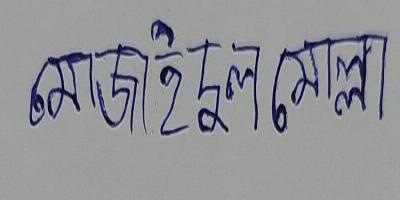 মোজাইদুল মোল্লা